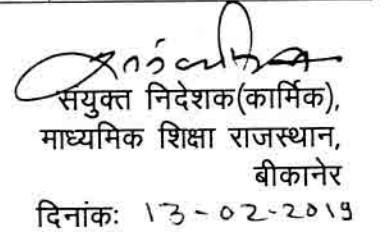 संयुक्त निदेशक(कार्मिक),
माध्यमिक शिक्षा राजस्थान,
बीकानेर
दिनांकः 13-02-2019